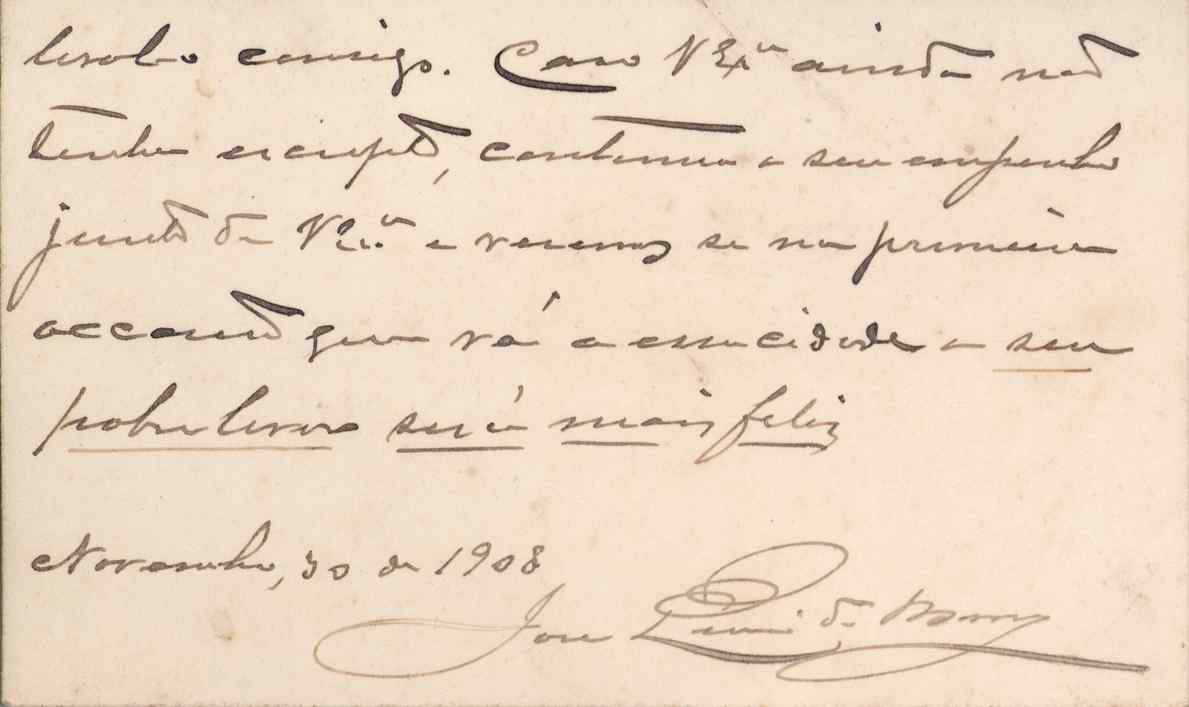 consigo. Caso V Exª ainda não
tenha escripto, continua o seu empenho
junto de V Exª e veremos se na primeira
que vá a essa cidade o seu
pobre livro será mais feliz
Novembro, 30 de 1908
José de Barros